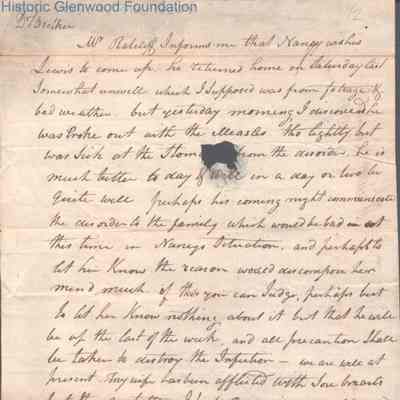 Historic Glenwood Foundation
Dr Brother
Mr Ratcliff Informs me that Nancy wishes
Lewis to come up, he returned home on Saturday last
Somewhat unwell which I Supposed was from fatuage &
bad weather, but yesterday morning I discovered he
was Broke out with the Measles tho lightly but
was Sick at the Stomach from the disorder, he is
much better to day & will in a day or two be
quite well perhaps his coming might communicate
the disorder to the family which would be bad at
this time in Nancys Situation, and perhaps to
let her Know the reason would discompose her
mind much of this you can Judge, perhaps best
to let her Know nothing about it but that he will
be up the last of the week, and all precaution Shall
be taken to destroy the Infection — we are well at
present My wife has been afflicted with Sore breasts